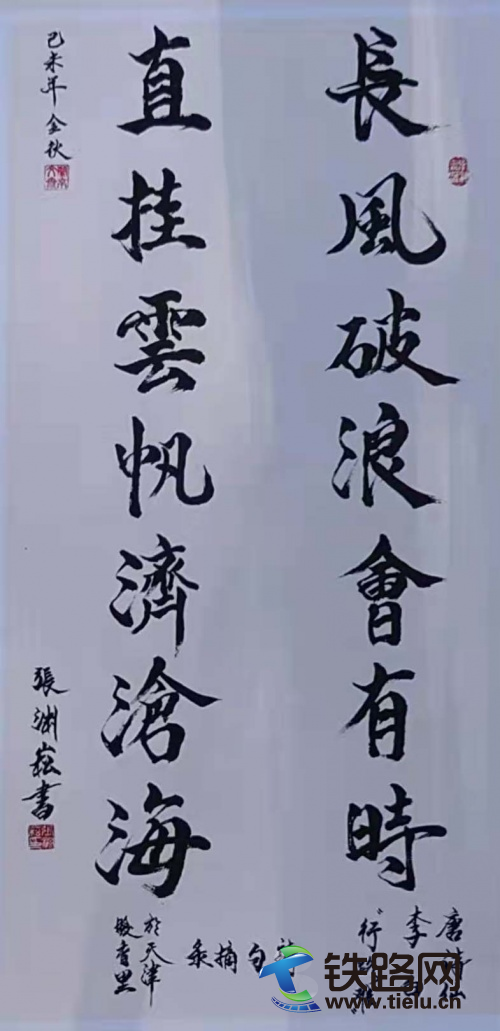 長風破浪會有時
直挂雲帆濟滄海
唐詩仙
李白
"行路難"
詩句摘录
於天津
己未年金秋
張淵崧書
铁路网
www.tielu.cn